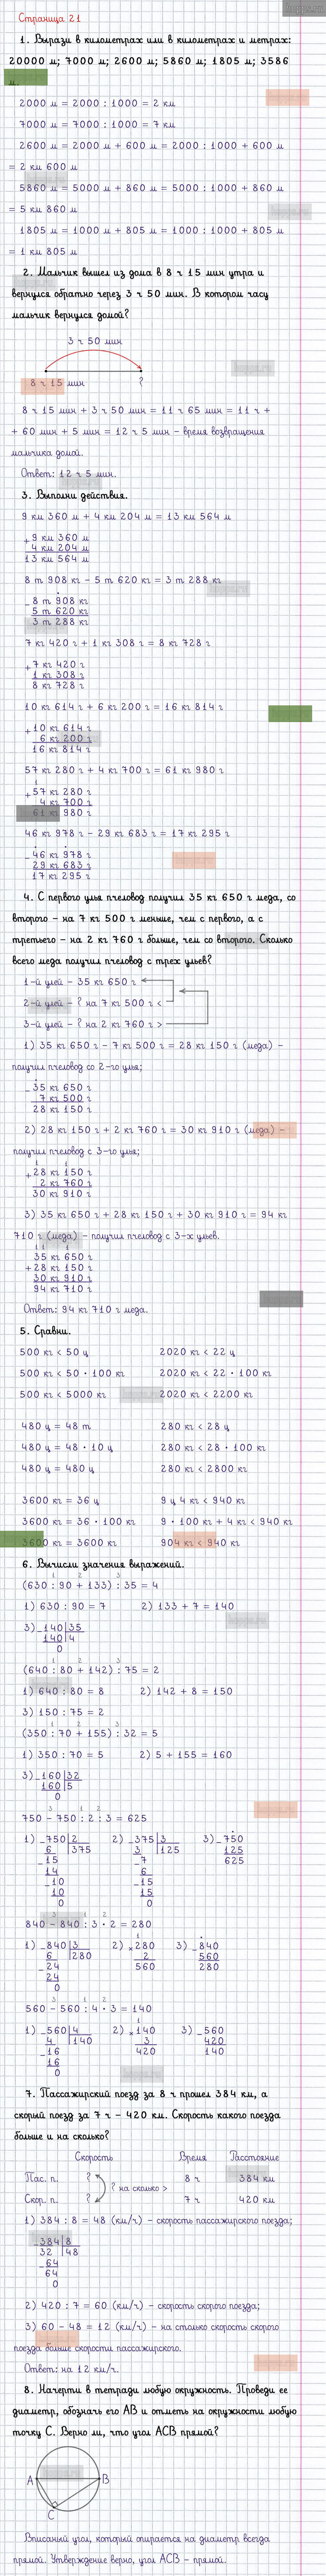 Страница 21
1. Вырази в километрах или в километрах и метрах:
20000 м; 7000 м; 2600 м; 5860 м; 1805 м; 3586
м.
2000 м = 2000 : 1000 = 2 км
7000 м = 7000 : 1000 = 7 км
2600 м = 2000 м + 600 м = 2000 : 1000 + 600 м
= 2 км 600 м
5860 м = 5000 м + 860 м = 5000 : 1000 + 860 м
= 5 км 860 м
1805 м = 1000 м + 805 м = 1000 : 1000 + 805 м
= 1 км 805 м
2. Мальчик вышел из дома в 8 ч 15 мин утра и
вернулся обратно через 3 ч 50 мин. В котором часу
мальчик вернулся домой?
3 ч 50 мин
8 ч 15 мин ?
8 ч 15 мин + 3 ч 50 мин = 11 ч 65 мин = 11 ч +
+ 60 мин + 5 мин = 12 ч 5 мин – время возвращения
мальчика домой.
Ответ: 12 ч 5 мин.
3. Выполни действия.
9 км 360 м + 4 км 204 м = 13 км 564 м
+ 9 км 360 м
4 км 204 м
13 км 564 м
8 т 908 кг – 5 т 620 кг = 3 т 288 кг
– 8 т 908 кг
5 т 620 кг
3 т 288 кг
7 кг 420 г + 1 кг 308 г = 8 кг 728 г
+ 7 кг 420 г
1 кг 308 г
8 кг 728 г
10 кг 614 г + 6 кг 200 г = 16 кг 814 г
+ 10 кг 614 г
6 кг 200 г
16 кг 814 г
57 кг 280 г + 4 кг 700 г = 61 кг 980 г
1
+ 57 кг 280 г
4 кг 700 г
61 кг 980 г
46 кг 978 г – 29 кг 683 г = 17 кг 295 г
– 46 кг 978 г
29 кг 683 г
17 кг 295 г
4. С первого улья пчеловод получил 35 кг 650 г меда, со
второго – на 7 кг 500 г меньше, чем с первого, а с
третьего – на 2 кг 760 г больше, чем со второго. Сколько
всего меда получил пчеловод с трех ульев?
1-й улей – 35 кг 650 г
2-й улей – ? на 7 кг 500 г <
3-й улей – ? на 2 кг 760 г >
1) 35 кг 650 г – 7 кг 500 г = 28 кг 150 г (меда) –
получил пчеловод со 2-го улья;
– 35 кг 650 г
7 кг 500 г
28 кг 150 г
2) 28 кг 150 г + 2 кг 760 г = 30 кг 910 г (меда) –
получил пчеловод с 3-го улья;
1 1
+ 28 кг 150 г
2 кг 760 г
30 кг 910 г
3) 35 кг 650 г + 28 кг 150 г + 30 кг 910 г = 94 кг
710 г (меда) – получил пчеловод с 3-х ульев.
1 1 1
35 кг 650 г
+ 28 кг 150 г
30 кг 910 г
94 кг 710 г
Ответ: 94 кг 710 г меда.
5. Сравни.
500 кг < 50 ц 2020 кг < 22 ц
500 кг < 50 · 100 кг 2020 кг < 22 · 100 кг
500 кг < 5000 кг 2020 кг < 2200 кг
480 ц = 48 т 280 кг < 28 ц
480 ц = 48 · 10 ц 280 кг < 28 · 100 кг
480 ц = 480 ц 280 кг < 2800 кг
3600 кг = 36 ц 9 ц 4 кг < 940 кг
3600 кг = 36 · 100 кг 9 · 100 кг + 4 кг < 940 кг
3600 кг = 3600 кг 904 кг < 940 кг
6. Вычисли значения выражений.
1 2 3
(630 : 90 + 133) : 35 = 4
1) 630 : 90 = 7 2) 133 + 7 = 140
3) – 140 | 35
140 | 4
0
1 2 3
(640 : 80 + 142) : 75 = 2
1) 640 : 80 = 8 2) 142 + 8 = 150
3) 150 : 75 = 2
1 2 3
(350 : 70 + 155) : 32 = 5
1) 350 : 70 = 5 2) 5 + 155 = 160
3) – 160 | 32
160 | 5
0
3 1 2
750 – 750 : 2 : 3 = 625
1) – 750 | 2 2) – 375 | 3 3) – 750
6 | 375 3 | 125 125
– 15 – 7 625
14 6
– 10 – 15
10 15
0 0
3 1 2
840 – 840 : 3 · 2 = 280
1) – 840 | 3 2) × 280 3) – 840
6 | 280 2 560
– 24 560 280
24
0
3 1 2
560 – 560 : 4 · 3 = 140
1) – 560 | 4 2) × 140 3) – 560
4 | 140 3 420
– 16 420 140
16
0
7. Пассажирский поезд за 8 ч прошел 384 км, а
скорый поезд за 7 ч – 420 км. Скорость какого поезда
больше и на сколько?
Скорость Время Расстояние
Пас. п. ? 8 ч 384 км
? на сколько >
Скор. п. ? 7 ч 420 км
1) 384 : 8 = 48 (км/ч) – скорость пассажирского поезда;
– 384 | 8
32 | 48
– 64
64
0
2) 420 : 7 = 60 (км/ч) – скорость скорого поезда;
3) 60 – 48 = 12 (км/ч) – на столько скорость скорого
поезда больше скорости пассажирского.
Ответ: на 12 км/ч.
8. Начерти в тетради любую окружность. Проведи ее
диаметр, обозначь его АВ и отметь на окружности любую
точку С. Верно ли, что угол АСВ прямой?
А В
С
Вписаный угол, который опирается на диаметр всегда
прямой. Утверждение верно, угол АСВ – прямой.